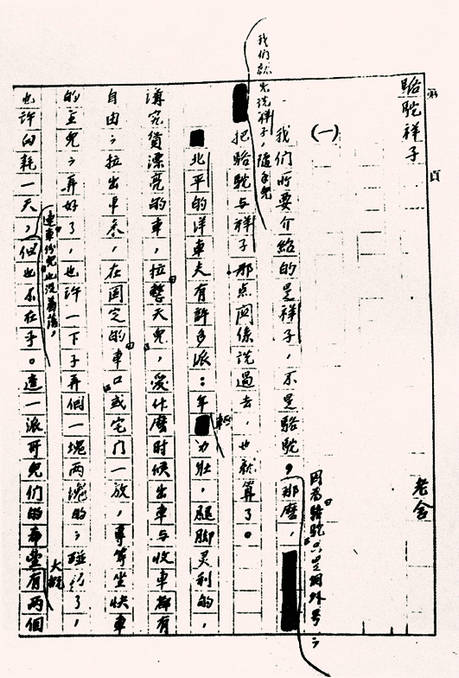 第 頁
駱駝祥子
老舍
(一)
我们所要介紹的是祥子,不是駱駝,
因为“駱駝”只是個外号;
那麽,
我们就先說祥子,随手兒
把駱駝与祥子那点関係說过去,也就算了。
北平的洋車夫有許多派:年
軽
力壮,腿脚灵利的,
講究賃漂亮的車,拉“整天兒”,爱什麽时候出車与收車都有
自由;拉出車来,在固定的“車口”或宅门一放,專等坐快車
的主兒;弄好了,也許一下子弄個一塊两塊的;碰巧了,
也許白耗一天,
連“車份兒”也没着落,
但也不在乎。這一派哥兒们的希望
大概
有两個